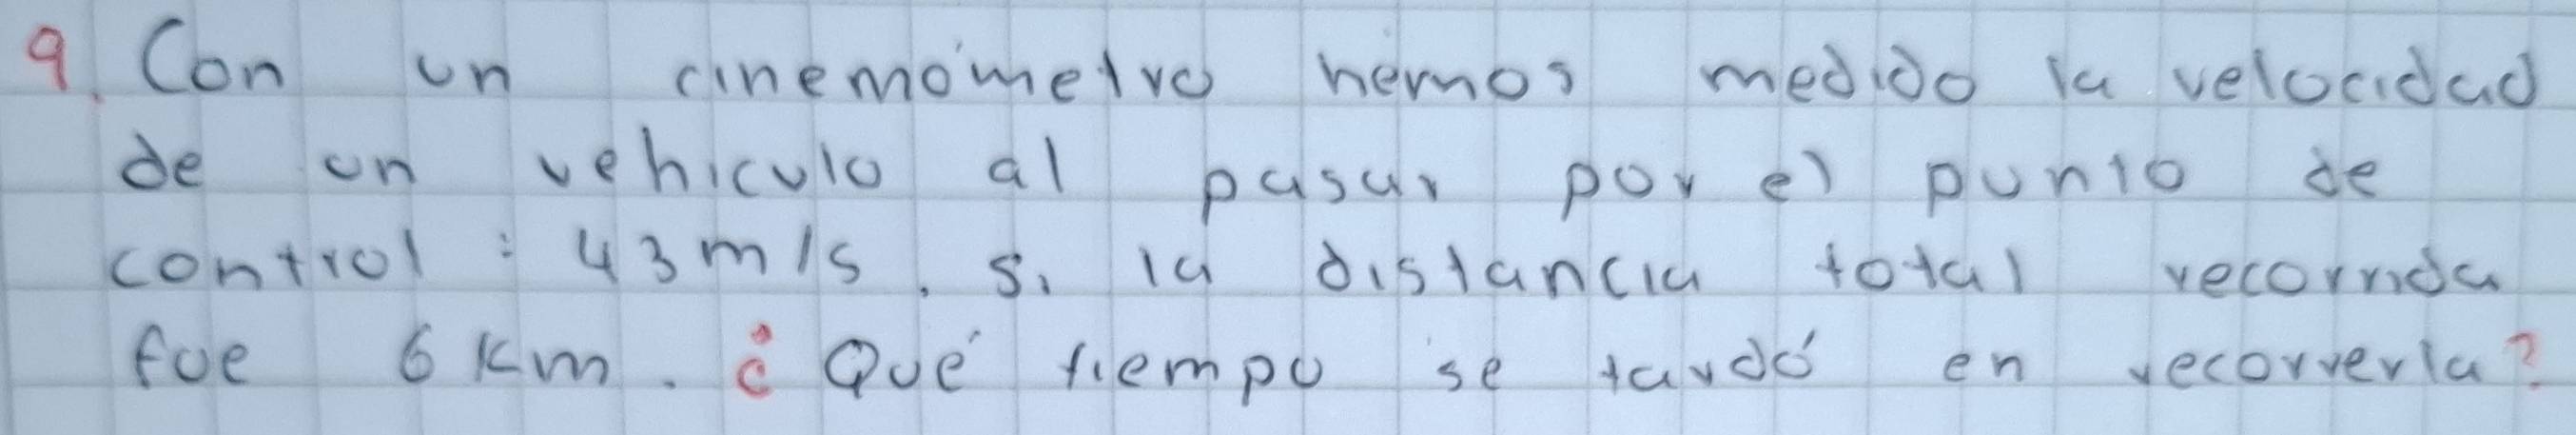 9. Con un cinemómetro hemos medido la velocidad
de un vehiculo al pasar por el punto de
control : 43 m/s . Si la distancia total recorrida
fue 6 Km . ¿ Qué tiempo se tardó en recorrerla?